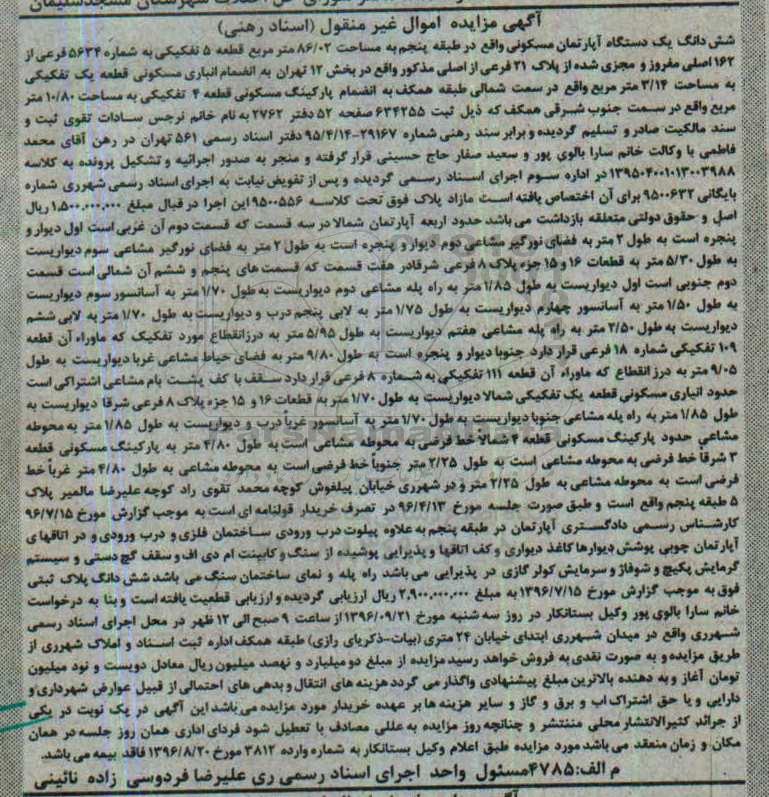 آگهی مزایده اموال غیر منقول (اسناد رهنی)
شش دانگ یک دستگاه آپارتمان مسکونی واقع در طبقه پنجم به مساحت ۸۶/۰۲ متر مربع قطعه ۵ تفکیکی به شماره ۵۶۳۴ فرعی از
۱۶۲ اصلی مفروز و مجزی شده از پلاک ۲۱ فرعی از اصلی مذکور واقع در بخش ۱۲ تهران به انضمام انباری مسکونی قطعه یک تفکیکی
به مساحت ۳/۱۴ متر مربع واقع در سمت شمالی طبقه همکف به انضمام پارکینگ مسکونی قطعه ۴ تفکیکی به مساحت ۱۰/۸۰ متر
مربع واقع در سمت جنوب شرقی همکف که ذیل ثبت ۶۳۴۲۵۵ صفحه ۵۲ دفتر ۲۷۶۲ به نام خانم نرجس سادات تقوی ثبت و
سند مالکیت صادر و تسلیم گردیده و برابر سند رهنی شماره ۲۹۱۶۷-۹۵/۴/۱۴ دفتر اسناد رسمی ۵۶۱ تهران در رهن آقای محمد
فاطمی با وکالت خانم سارا بالوی پور و سعید صفار حاج حسینی قرار گرفته و منجر به صدور اجرائیه و تشکیل پرونده به کلاسه
۱۳۹۵۰۴۰۰۱۰۱۳۰۰۳۹۸۸ در اداره سوم اجرای اسناد رسمی گردیده و پس از تفویض نیابت به اجرای اسناد رسمی شهرری شماره
بایگانی ۹۵۰۰۶۳۲ برای آن اختصاص یافته است مازاد پلاک فوق تحت کلاسه ۹۵۰۰۵۵۶ این اجرا در قبال مبلغ ۱,۵۰۰,۰۰۰,۰۰۰ ریال
اصل و حقوق دولتی متعلقه بازداشت می باشد حدود اربعه آپارتمان شمالا در سه قسمت که قسمت دوم آن غربی است اول دیوار و
پنجره است به طول ۲ متر به فضای نورگیر مشاعی دوم دیوار و پنجره است به طول ۲ متر به فضای نورگیر مشاعی سوم دیواریست
به طول ۵/۳۰ متر به قطعات ۱۶ و ۱۵ جزء پلاک ۸ فرعی شرقادر هفت قسمت که قسمت های پنجم و ششم آن شمالی است قسمت
دوم جنوبی است اول دیواریست به طول ۱/۸۵ متر به راه پله مشاعی دوم دیواریست به طول ۱/۷۰ متر به آسانسور سوم دیواریست
به طول ۱/۵۰ متر به آسانسور چهارم دیواریست به طول ۱/۷۵ متر به لابی پنجم درب و دیواریست به طول ۱/۷۰ متر به لابی ششم
دیواریست به طول ۲/۵۰ متر به راه پله مشاعی هفتم دیواریست به طول ۵/۹۵ متر به درزانقطاع مورد تفکیک که ماوراء آن قطعه
۱۰۹ تفکیکی شماره ۱۸ فرعی قرار دارد جنوبا دیوار و پنجره است به طول ۹/۸۰ متر به فضای حیاط مشاعی غربا دیواریست به طول
۹/۰۵ متر به درز انقطاع که ماوراء آن قطعه ۱۱۱ تفکیکی به شماره ۸ فرعی قرار دارد سقف با کف پشت بام مشاعی اشتراکی است
حدود انباری مسکونی قطعه یک تفکیکی شمالا دیواریست به طول ۱/۷۰ متر به قطعات ۱۶ و ۱۵ جزء پلاک ۸ فرعی شرقا دیواریست به
طول ۱/۸۵ متر به راه پله مشاعی جنوبا دیواریست به طول ۱/۷۰ متر به آسانسور غرباً درب و دیواریست به طول ۱/۸۵ متر به محوطه
مشاعی حدود پارکینگ مسکونی قطعه ۴ شمالا خط فرضی به محوطه مشاعی است به طول ۴/۸۰ متر به پارکینگ مسکونی قطعه
۳ شرقاً خط فرضی به محوطه مشاعی است به طول ۲/۲۵ متر جنوباً خط فرضی است به محوطه مشاعی به طول ۴/۸۰ متر غرباً خط
فرضی است به محوطه مشاعی به طول ۲/۲۵ متر و در شهرری خیابان پیلغوش کوچه محمد تقوی راد کوچه علیرضا مالمیر پلاک
۵ طبقه پنجم واقع است و طبق صورت جلسه مورخ ۹۶/۴/۱۳ در تصرف خریدار قولنامه ای است به موجب گزارش مورخ ۹۶/۷/۱۵
کارشناس رسمی دادگستری آپارتمان در طبقه پنجم به علاوه پیلوت درب ورودی ساختمان فلزی و درب ورودی و در اتاقهای
آپارتمان چوبی پوشش دیوارها کاغذ دیواری و کف اتاقها و پذیرایی پوشیده از سنگ و کابینت ام دی اف و سقف گچ دستی و سیستم
گرمایش پکیج و شوفاژ و سرمایش کولر گازی در پذیرایی می باشد راه پله و نمای ساختمان سنگ می باشد شش دانگ پلاک ثبتی
فوق به موجب گزارش مورخ ۱۳۹۶/۷/۱۵ به مبلغ ۲,۹۰۰,۰۰۰,۰۰۰ ریال ارزیابی گردیده و ارزیابی قطعیت یافته است و بنا به درخواست
خانم سارا بالوی پور وکیل بستانکار در روز سه شنبه مورخ ۱۳۹۶/۰۹/۲۱ از ساعت ۹ صبح الی ۱۲ ظهر در محل اجرای اسناد رسمی
شهرری واقع در میدان شهرری ابتدای خیابان ۲۴ متری (بیات-ذکریای رازی) طبقه همکف اداره ثبت اسناد و املاک شهرری از
طریق مزایده و به صورت نقدی به فروش خواهد رسید مزایده از مبلغ دو میلیارد و نهصد میلیون ریال معادل دویست و نود میلیون
تومان آغاز و به دهنده بالاترین مبلغ پیشنهادی واگذار می گردد هزینه های انتقال و بدهی های احتمالی از قبیل عوارض شهرداری و
دارایی و یا حق اشتراک اب و برق و گاز و سایر هزینه ها بر عهده خریدار مورد مزایده می باشد این آگهی در یک نوبت در یکی
از جرائد کثیرالانتشار محلی منتشر و چنانچه روز مزایده به عللی مصادف با تعطیل شود فردای اداری همان روز جلسه در همان
مکان و زمان منعقد می باشد مورد مزایده طبق اعلام وکیل بستانکار به شماره وارده ۳۸۱۲ مورخ ۱۳۹۶/۸/۲۰ فاقد بیمه می باشد.
م الف: ۴۷۸۵ مسئول واحد اجرای اسناد رسمی ری علیرضا فردوسی زاده نائینی